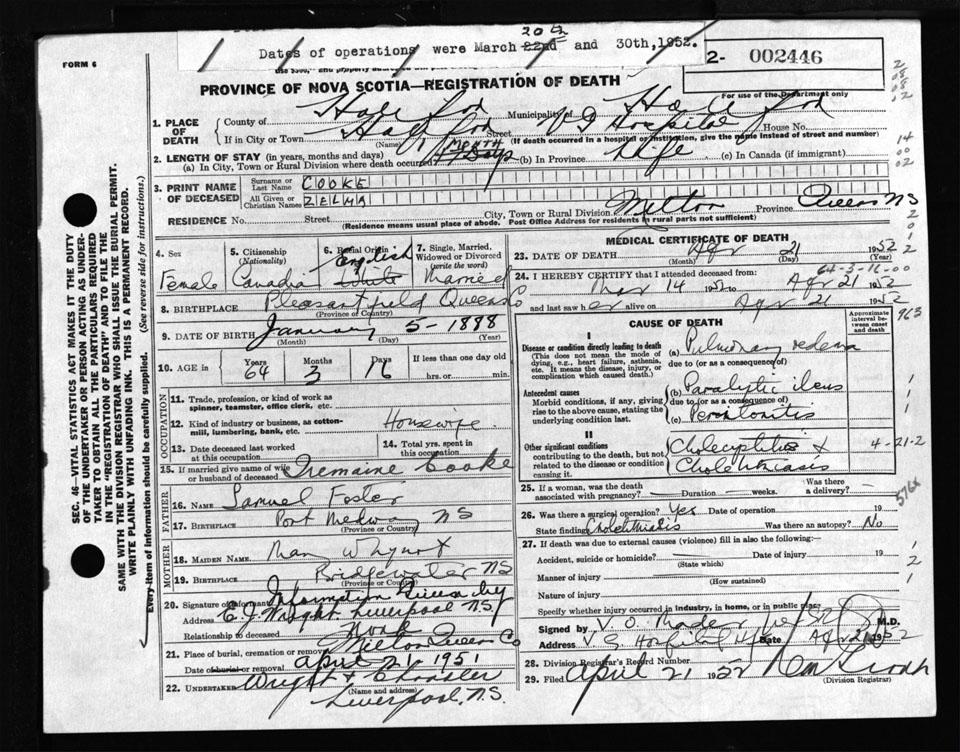 20th
Dates of operations were March 22nd and 30th, 1952.
FORM 6
2- 002446
For use of the Department only
PROVINCE OF NOVA SCOTIA—REGISTRATION OF DEATH
1. PLACE OF DEATH
County of Municipality of
If in City or Town (Name) Street V G Hospital House No.
(If death occurred in a hospital or institution, give the name instead of street and number)
2. LENGTH OF STAY (in years, months and days)
(a) In City, Town or Rural Division where death occurred 1 MONTH 7 Days (b) In Province Life (c) In Canada (if immigrant)
3. PRINT NAME OF DECEASED
Surname or Last Name COOKE
All Given or Christian Names ZELMA
RESIDENCE No. Street City, Town or Rural Division Milton Province Queens NS
(Residence means usual place of abode. Post Office Address for residents in rural parts not sufficient)
4. Sex Female
5. Citizenship (Nationality) Canadian
6. Racial Origin English White
7. Single, Married, Widowed or Divorced (write the word) Married
8. BIRTHPLACE Pleasantfield Queens Co
(Province or Country)
9. DATE OF BIRTH January 5 - 1888
(Month) (Day) (Year)
10. AGE in Years 64 Months 3 Days 16 If less than one day old hrs. or min.
OCCUPATION
11. Trade, profession, or kind of work as spinner, teamster, office clerk, etc.
12. Kind of industry or business, as cotton-mill, lumbering, bank, etc. Housewife
13. Date deceased last worked at this occupation
14. Total yrs. spent in this occupation
15. If married give name of wife or husband of deceased Tremaine Cooke
FATHER
16. NAME Samuel Foster
17. BIRTHPLACE Port Medway NS
(Province or Country)
MOTHER
18. MAIDEN NAME Whynot
19. BIRTHPLACE Bridgewater NS
(Province or Country)
20. Signature of Informant Information Given by
Address E. J. Wright Liverpool N.S.
Relationship to deceased None
21. Place of burial, cremation or removal Milton Queens Co
Date of burial or removal April 21 1951
22. UNDERTAKER Wright &
(Name and address)
Liverpool, N.S.
MEDICAL CERTIFICATE OF DEATH
23. DATE OF DEATH Apr 21 1952
(Month) (Day) (Year)
64-3-16-00
24. I HEREBY CERTIFY that I attended deceased from:
Mar 14 1952 to Apr 21 1952
and last saw her alive on Apr 21 1952
963
CAUSE OF DEATH
Approximate interval between onset and death
Disease or condition directly leading to death
(This does not mean the mode of dying, e.g., heart failure, asthenia, etc. It means the disease, injury, or complication which caused death.)
(a) Pulmonary edema
due to (or as a consequence of)
Antecedent causes
Morbid conditions, if any, giving rise to the above cause, stating the underlying condition last.
(b) Paralytic ileus
due to (or as a consequence of)
(c) Peritonitis
II
Other significant conditions contributing to the death, but not related to the disease or condition causing it.
Cholecystitis &
Cholelithiasis
4-21-2
25. If a woman, was the death associated with pregnancy? Duration weeks. Was there a delivery?
26. Was there a surgical operation? Yes Date of operation 19
State findings Cholelithiasis Was there an autopsy? No
27. If death was due to external causes (violence) fill in also the following:—
Accident, suicide or homicide? Date of injury 19
(State which)
Manner of injury
(How sustained)
Nature of injury
Specify whether injury occurred in industry, in home, or in public place
Signed by V. O. Mader M.D.
Address V. G. Hospital Date Apr 21 1952
28. Division Registrar's Record Number
29. Filed April 21 1952
(Division Registrar)
SEC. 46—VITAL STATISTICS ACT MAKES IT THE DUTY OF THE UNDERTAKER OR PERSON ACTING AS UNDERTAKER TO OBTAIN ALL THE PARTICULARS REQUIRED IN THE "REGISTRATION OF DEATH" AND TO FILE THE SAME WITH THE DIVISION REGISTRAR WHO SHALL ISSUE THE BURIAL PERMIT.
WRITE PLAINLY WITH UNFADING INK. THIS IS A PERMANENT RECORD.
Every item of information should be carefully supplied. (See reverse side for instructions.)